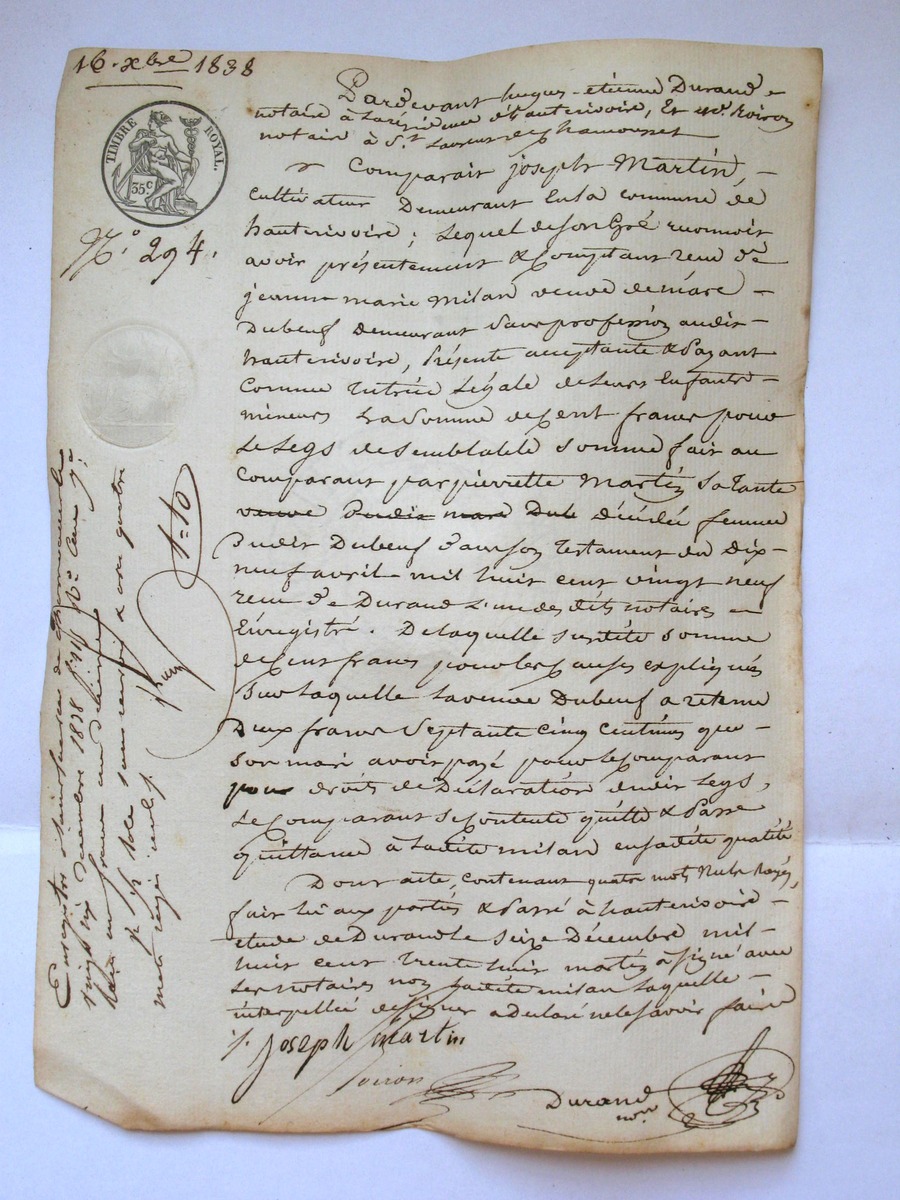 16. xbre 1838
TIMBRE ROYAL.
35c
N.° 294.
Pardevant hugues-étienne Durand
notaire à la résidence d'hauterivoire, Et me. Noiron
notaire à St. Laurent de Chamousset
Comparait joseph Martin,
cultivateur Demeurant En la commune de
hauterivoire ; Lequel de son Gré reconnoit
avoir présentement & Comptant reçu de
jeanne marie milan veuve de marc
Dubeuf demeurant Sans profession audit
hauterivoire, Présente acceptante & Payant
Comme Tutrice Légale de Leurs Enfants
mineurs La Somme de Cent francs pour
Le Legs de Semblable Somme fait au
Comparant par pierrette Martin Sa Tante
veuve Dudit marc Dub décédée femme
Dudit Dubeuf Dans son Testament du Dix
neuf avril mil huit cent vingt neuf
reçu de Durand L'un des dits notaires
Enregistré. De laquelle Susdite Somme
de Cent francs pour les Causes expliquées
Sur Laquelle La veuve Dubeuf a retenu
Deux francs Septante Cinq Centimes que
Son mari avoit payé pour le Comparant
pour droits de Déclaration dudit Legs,
Le Comparant Se Contente quitte & Passe
quittance à Ladite milan en sadite qualité
Dont acte, contenant quatre mots Nuls Rayés,
fait Lû aux parties & Passé à hauterivoire
étude de Durand Le Seize Décembre mil
huit cent Trente huit martin a Signé avec
Les notaires non Ladite milan Laquelle
interpellée de signer a Déclaré ne le Savoir faire
joseph martin
Noiron
Durand
nore
Enregistré à
vingt six décembre 1838
mots rayés nuls